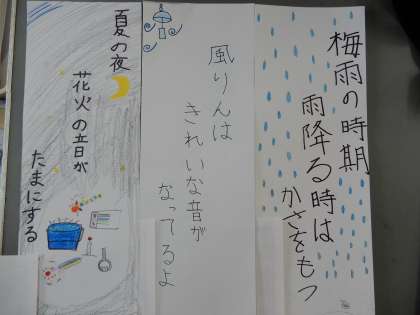 梅雨の時期
雨降る時は
かさをもつ
風りんは
きれいな音が
なってるよ
夏の夜
花火の音が
たまにする